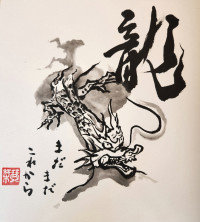 龍
まだまだ
これから